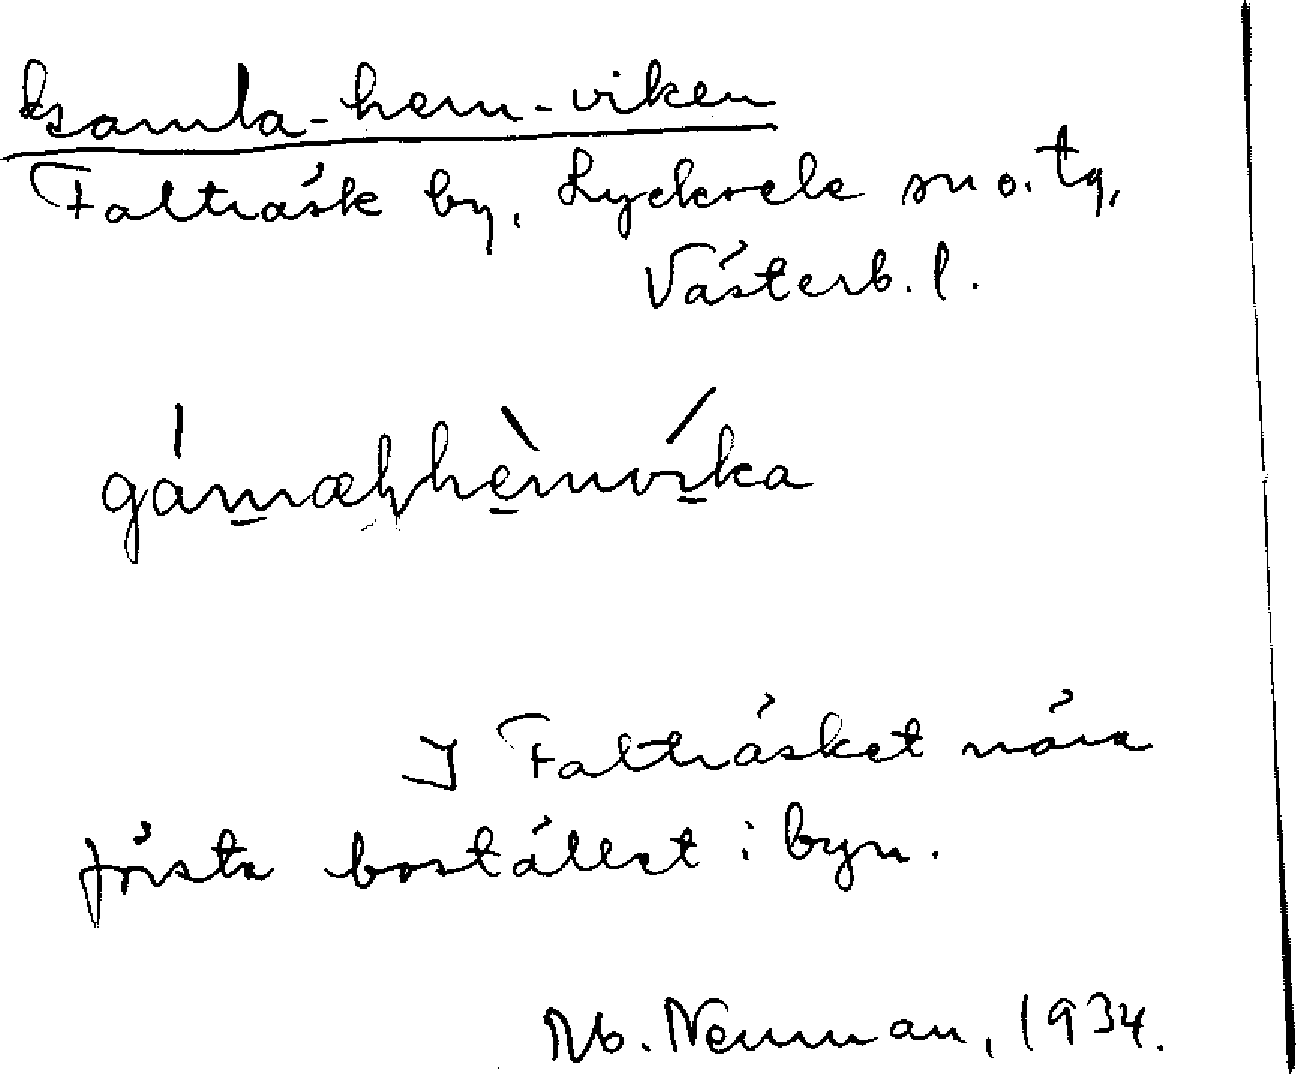 Gamla-hem-viken
Falträsk by, Lycksele sn o. tg,
Västerb. l.
I Falträsket nära
första bostället i byn.
Neuman, 1934.